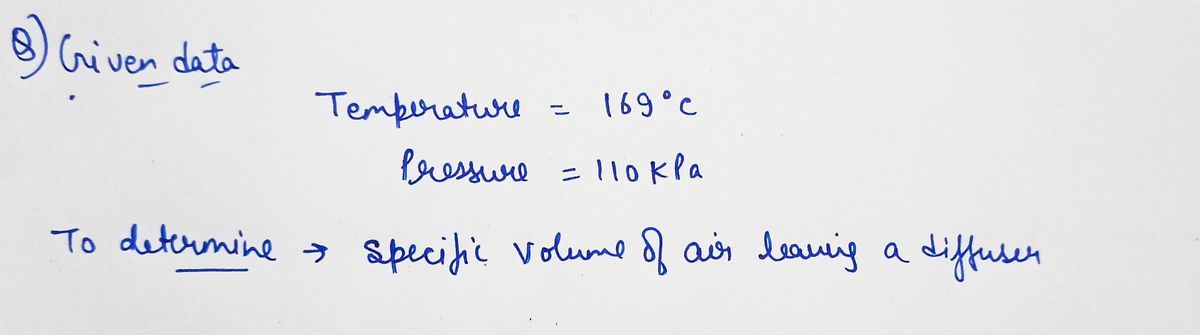 Q) Given data
Temperature = 169°C
Pressure = 110 KPa
To determine → specific volume of air leaving a diffuser